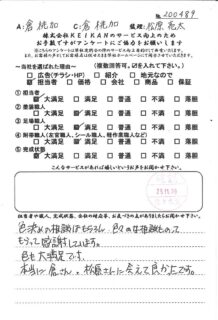 No 200489
A:倉 桃加 C:倉 桃加 監理:松原 亮太
株式会社KEIKANのサービス向上のため
お手数ですがアンケートにご協力をお願いします
～当社を選ばれた理由～ (複数選択可。☑を入れて下さい。)
□広告(チラシ・HP) □紹介 □地元なので
☑担当者 □価格 □会社 □商品 □保証
①担当者
☑大満足 □満足 □普通 □不満 □落胆
②塗装職人
☑大満足 □満足 □普通 □不満 □落胆
☑大満足 □満足 □普通 □不満 □落胆
☑大満足 □満足 □普通 □不満 □落胆
⑤完成状態
☑大満足 □満足 □普通 □不満 □落胆
こんなサービスがあれば嬉しいというご意見をお聞かせ下さい。
色決めの相談はもちろん、色々な相談もして
もらって感謝しています。
色も大満足です。
本当に倉さん、松原さんに会えて良かったです。